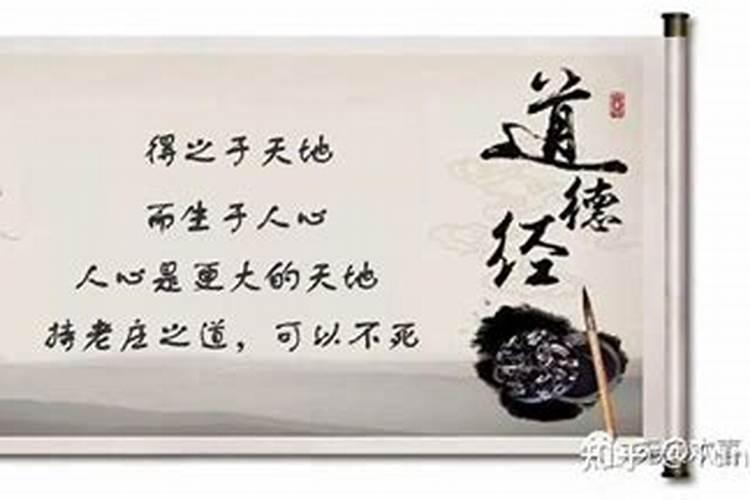 得之于天地
而生于人心
人心是更大的天地
持老庄之道，可以不死
道德经
知乎